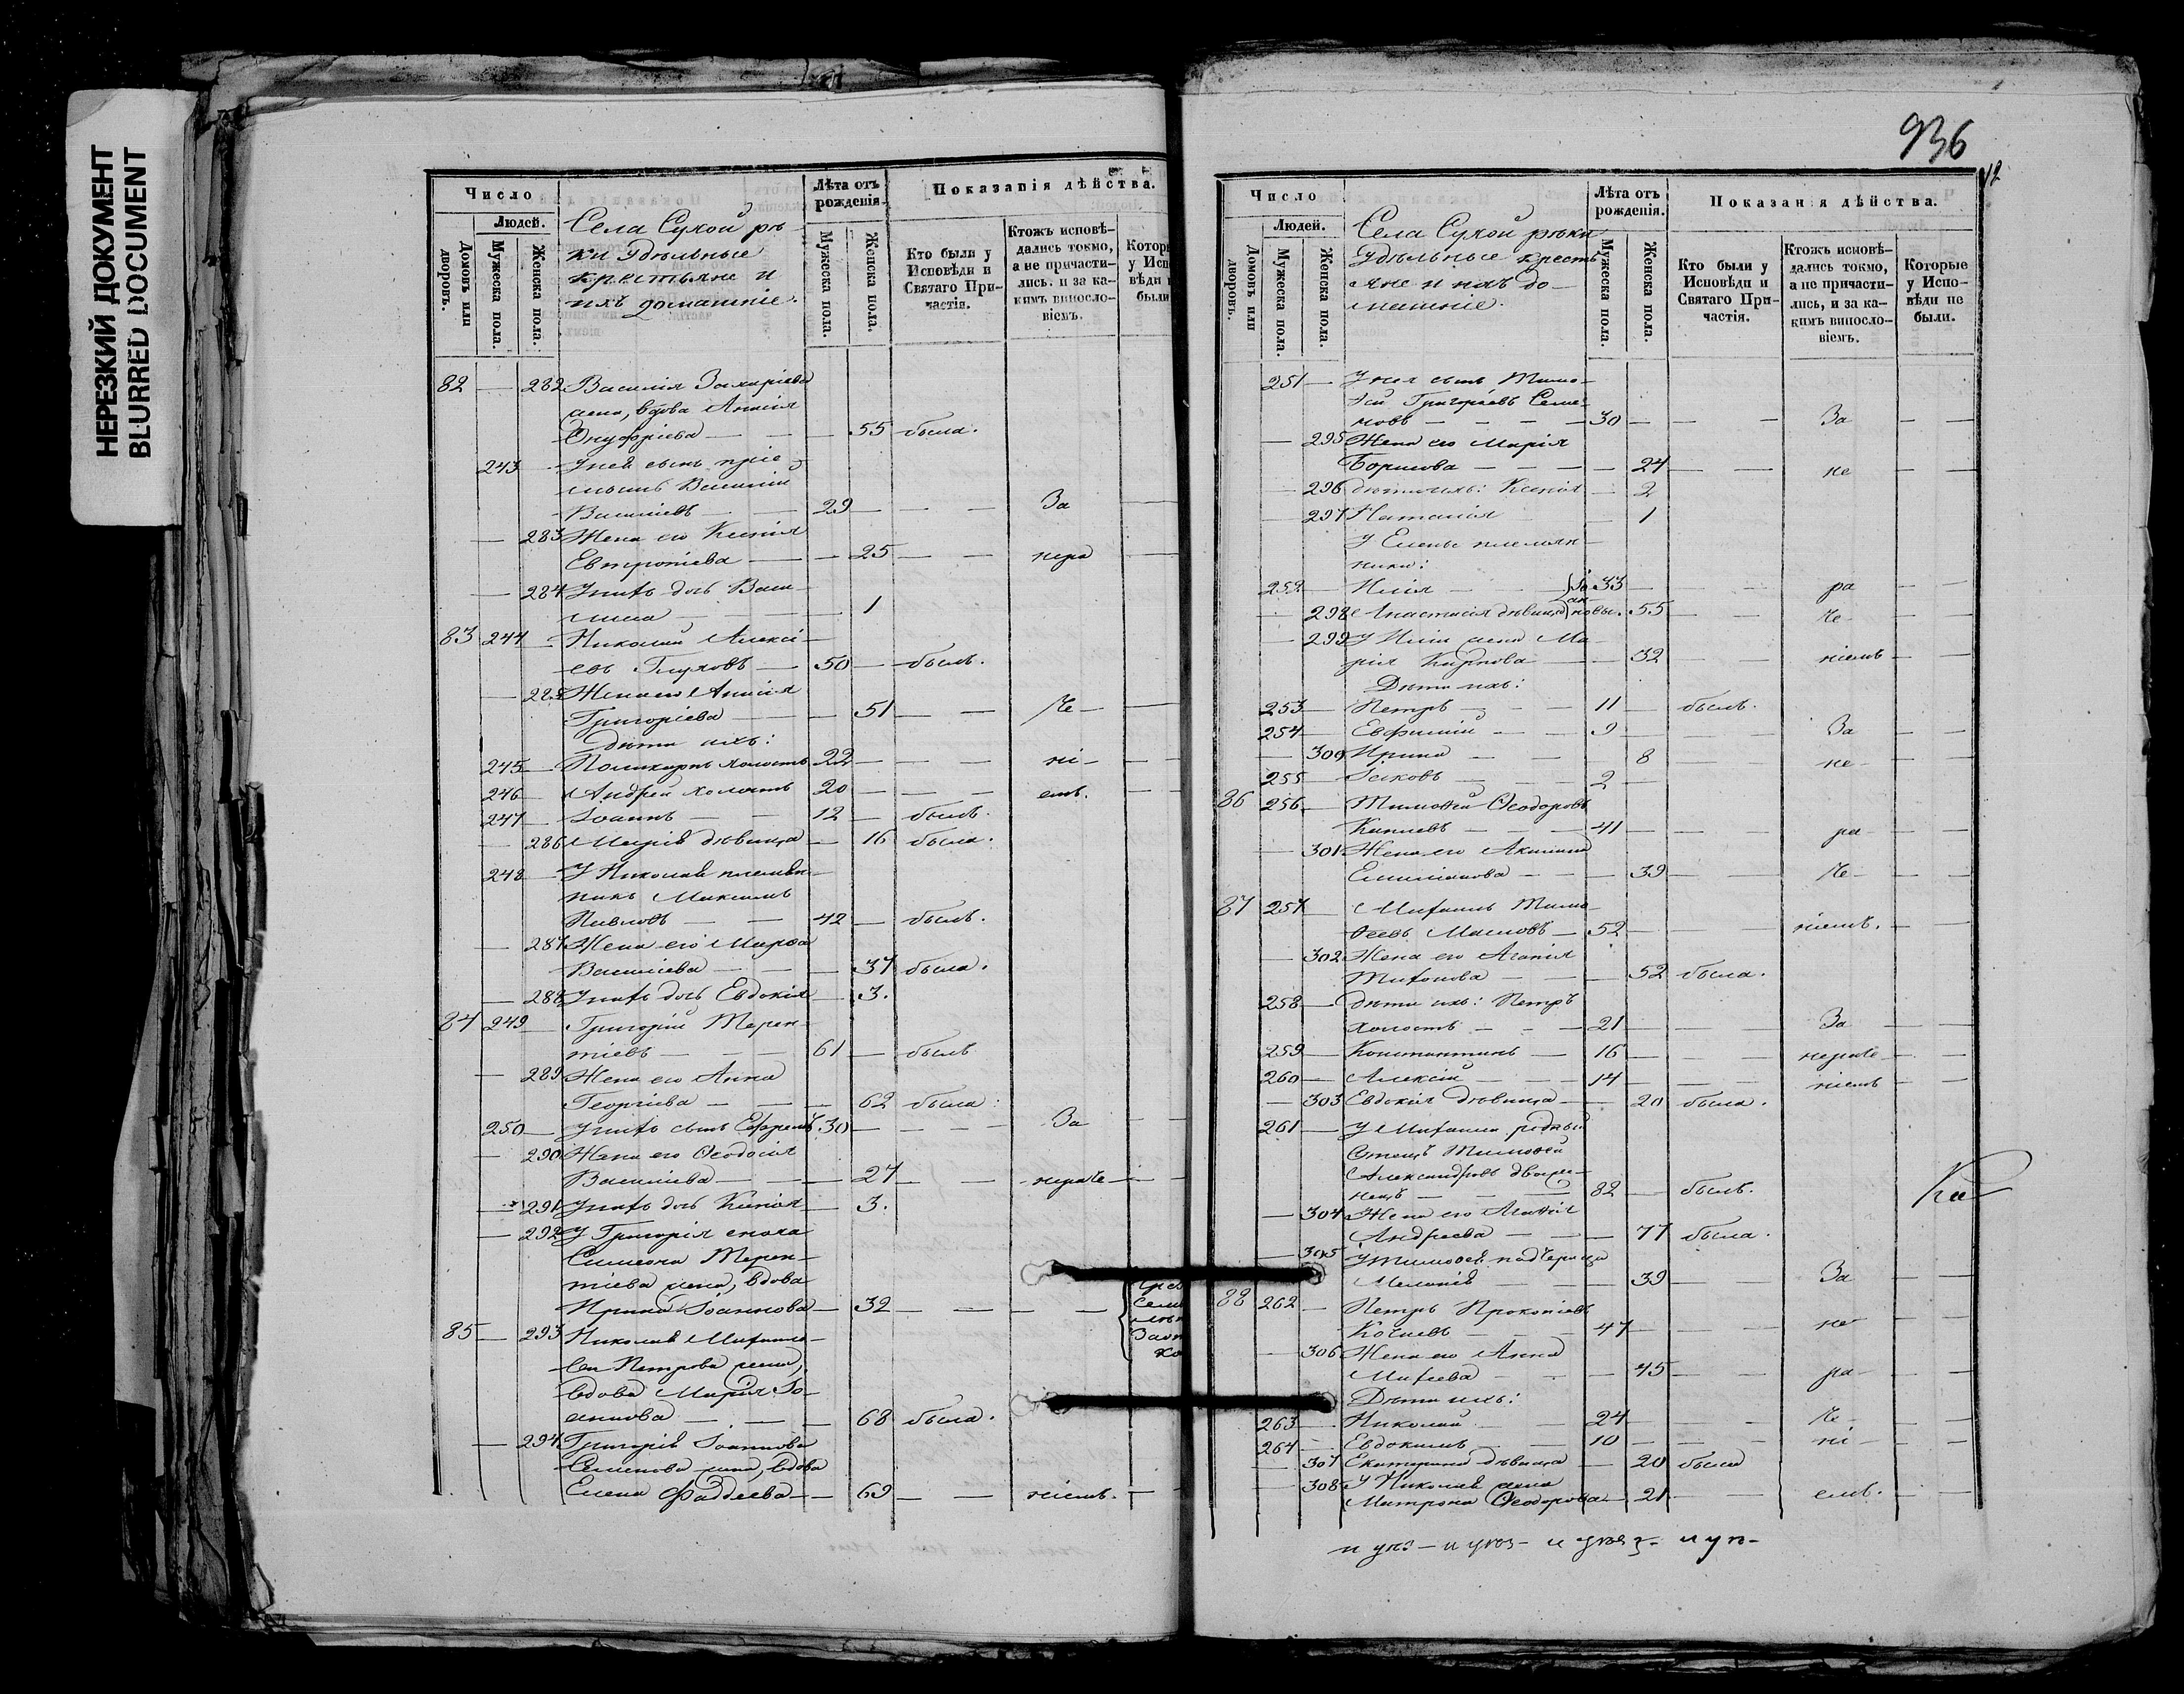 НЕРЕЗКИЙ ДОКУМЕНТ
BLURRED DOCUMENT
Число
Людей.
Домовъ или дворовъ.
Мужеска пола.
Женска пола.
Села Сухой рѣ-
ки Удѣльные
крестьяне и
ихъ домашніе.
Лѣта отъ рожденія.
Мужеска пола.
Женска пола.
Показанія дѣйства.
Кто были у Исповѣди и Святаго Причастія.
Ктожъ исповѣдались токмо, а не причастились, и за какимъ винословіемъ.
82 — 282 Василія Захаріева
жена, вдова Анисія
Онуфріева — — — 55 была.
243 — У ней сынъ пріе-
мышъ Василій
Василіевъ — — 29 — — — За
— 283 Жена его Ксенія
Евтропіева — — 25 — — нера
— 284 У нихъ дочь Васи-
лиса — — — 1
83 244 — Николай Алексі-
евъ Глуховъ — 50 — былъ.
— 285 Жена его Анисія
Григоріева — — 51 — — че —
Дѣти ихъ:
245 — Поликарпъ холостъ 22 — — — ні —
246 — Андрей холостъ 20 — — — емъ.
247 — Іоаннъ — — 12 — былъ.
— 286 Марія дѣвица — 16 была.
248 — У Николая племян-
никъ Максимъ
Павловъ — — 42 — былъ.
— 287 Жена его Марѳа
Василіева — — 37 была.
— 288 У нихъ дочь Евдокія — 3.
84 249 — Григорій Терен-
тіевъ — — — 61 — былъ
— 289 Жена его Анна
Георгіева — — — 62 была.
250 — У нихъ сынъ Ефремъ 30 — — — За
— 290 Жена его Ѳеодосія
Василіева — — — 27 — — нераче —
— 291 У нихъ дочь Ксенія — 3.
— 292 У Григорія сноха
Симеона Терен-
тіева жена, вдова
Ирина Іоаннова — 32 — — — —
85 — 293 Николая Михайло-
ва Петрова жена,
вдова Марія Іо-
аннова — — — 68 была.
— 294 Григорія Іоаннова
Семенова жена, вдова
Елена Фаддеева — — 69 — — ніемъ.
936
12
Число
Людей.
Домовъ или дворовъ.
Мужеска пола.
Женска пола.
Села Сухой рѣки
Удѣльные кресть-
яне и ихъ до-
машніе.
Лѣта отъ рожденія.
Мужеска пола.
Женска пола.
Показанія дѣйства.
Кто были у Исповѣди и Святаго Причастія.
Ктожъ исповѣдались токмо, а не причастились, и за какимъ винословіемъ.
Которые у Исповѣди не были.
251 — У нея сынъ Тимо-
ѳей Григорьевъ Семе-
новъ — — — — 30 — — — За — —
— 295 Жена его Марія
Борисова — — — — 24 — — не
— 296 дѣти ихъ: Ксенія — 2
— 297 Наталія — 1
У Елены племян-
ники:
252 — Илія — — 33 — — ра — —
— 298 Анастасія дѣвица 55 — — че —
— 299 У Иліи жена Ма-
рія Карпова — — 32 — — ніемъ —
Дѣти ихъ:
253 — Петръ — — — 11 — былъ.
254 — Евфимій — — 9 — — За — —
— 300 Ирина — — 8 — не — —
255 — Іаковъ — — — 2 —
86 256 — Тимоѳей Ѳеодоровъ
— — 41 — — — ра — —
— 301 Жена его Акилина
Емиліанова — — — 39 — — че —
87 257 — Михаилъ Тимо-
ѳеевъ Масловъ — 52 — — — ніемъ. —
— 302 Жена его Агапія
Тихонова — — — 52 была.
258 — дѣти ихъ: Петръ
холостъ — — — 21 — — — За — —
259 — Константинъ — 16 — — — нераче — —
260 — Алексій — — 14 — — — ніемъ — —
— 303 Евдокія дѣвица — — 20 была.
261 — У Михаила родный
Отецъ Тимоѳей
Александровъ
— — — 82 — былъ.
— 304 Жена его Агаѳія
Андреева — — — 77 была.
— 305 У Тимоѳея падчерица
Меланія — — — 39 — — За — —
88 262 — Петръ Прокопіевъ
— — 47 — — — не — —
— 306 Жена его Анна
Михеева — — — 45 — — ра — —
Дѣти ихъ:
263 — Николай — — 24 — — че — —
264 — Евдокимъ — 10 — — — ні — —
— 307 Екатерина дѣвица — 20 была
— 308 У Николая жена
Матрона Ѳеодорова — 21 — — емъ. —